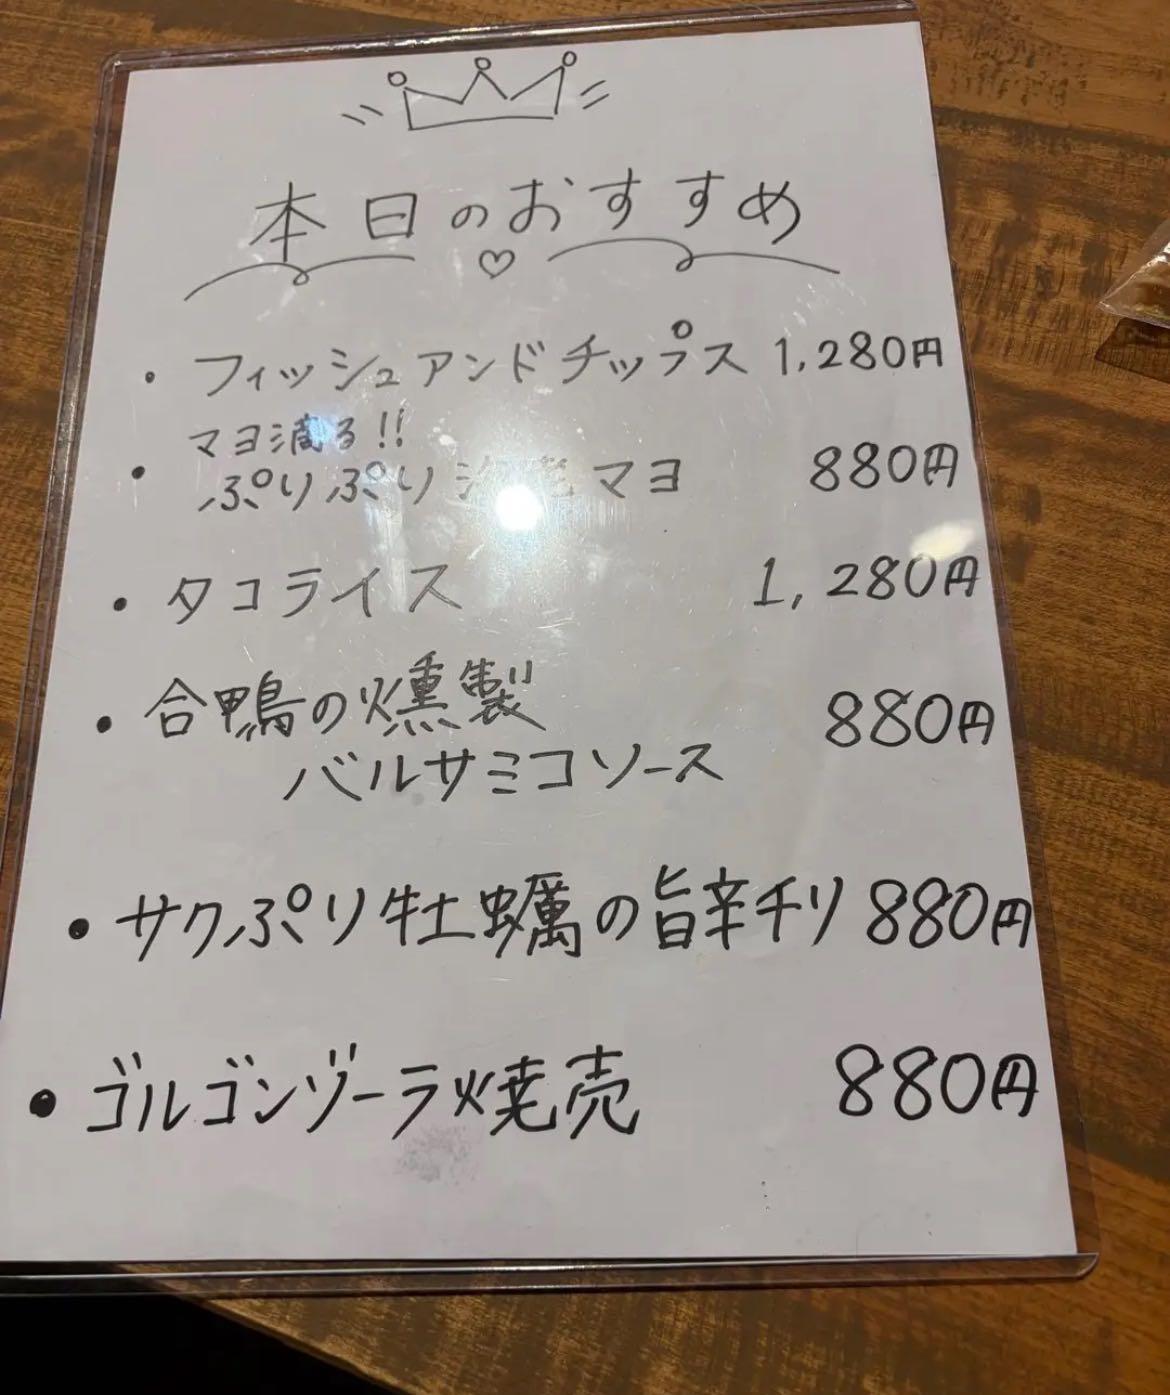 本日のおすすめ
・フィッシュアンドチップス 1,280円
マヨ滴る!!
・ぷりぷり海老マヨ 880円
・タコライス 1,280円
・合鴨の燻製 880円
バルサミコソース
・サクぷり牡蠣の旨辛チリ 880円
・ゴルゴンゾーラ焼売 880円